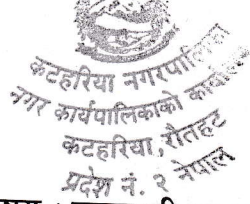 कटहरिया नगरपालिका
नगर कार्यपालिकाको कार्यालय
कटहरिया, रौतहट
प्रदेश नं. २ नेपाल